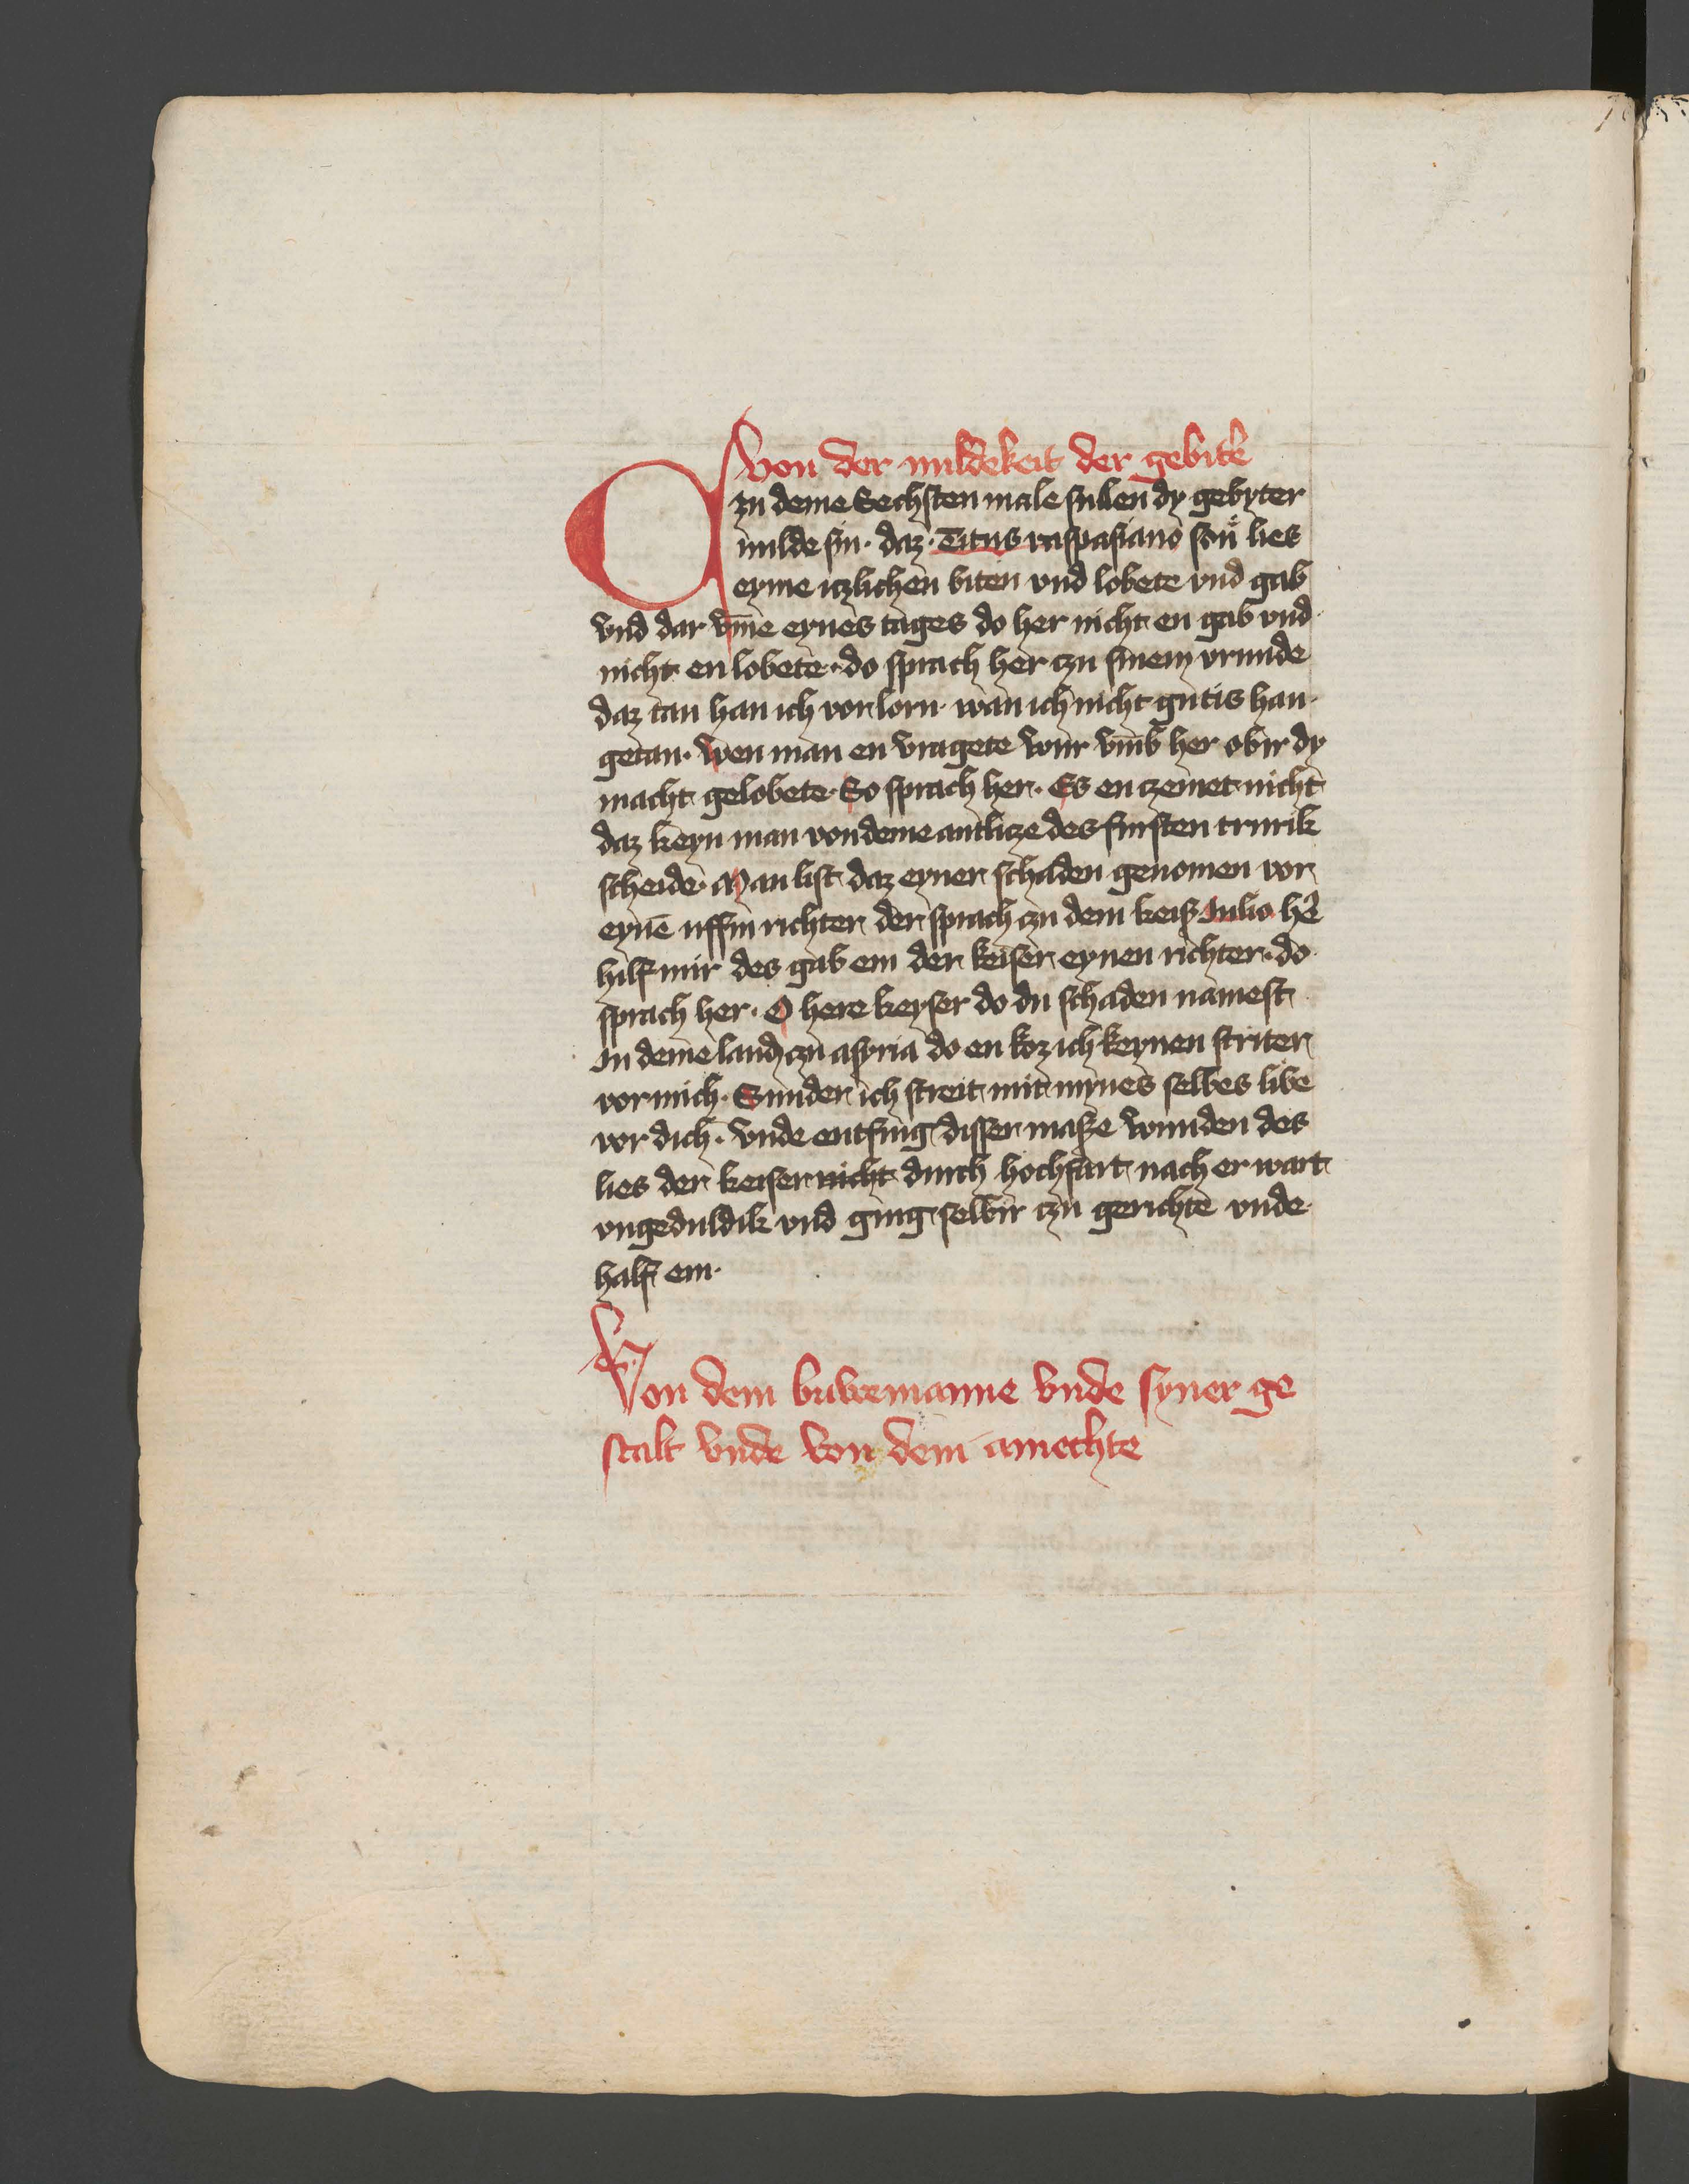 von der mildekeit der gebitᵉ
Czu deme Sechsten male sullen dy gebyter
milde sin · daz · Titus vaspasianꝰ son lies
eyme iczlichen biten vnd lobete vnd gab
vnd dar vm̄e eynes tages do her nicht en gab vnd
nicht en lobete · do sprach her czu sinem vrunde
daz tan han ich vorlorn · wan ich nicht gutis han ·
getan · wen man en vragete wur vmb her obir dy
macht gelobete · So sprach her · Es en czemet nicht
daz keyn man von deme antlicze des fursten trurik
scheide · Man list daz eyner schaden genomen vor
eynē uffin richter der sprach czu dem keiß Julio hᵉ
hilf mir des gab em der keiser eynen richter · do
sprach her · O here keyser do du schaden namest
In deme land czu asyria do en koz ich keynen striter
vor mich · Sunder ich streit mit mynes selbes libe
vor dich · vnde entfing disser maße wunden des
lies der keiser nicht durch hochfart nach er wart
vngeduldik vnd ging selbir czu gerichte vnde
half em ·
Von dem buwemanne vnde syner ge
stalt vnde von dem amechte